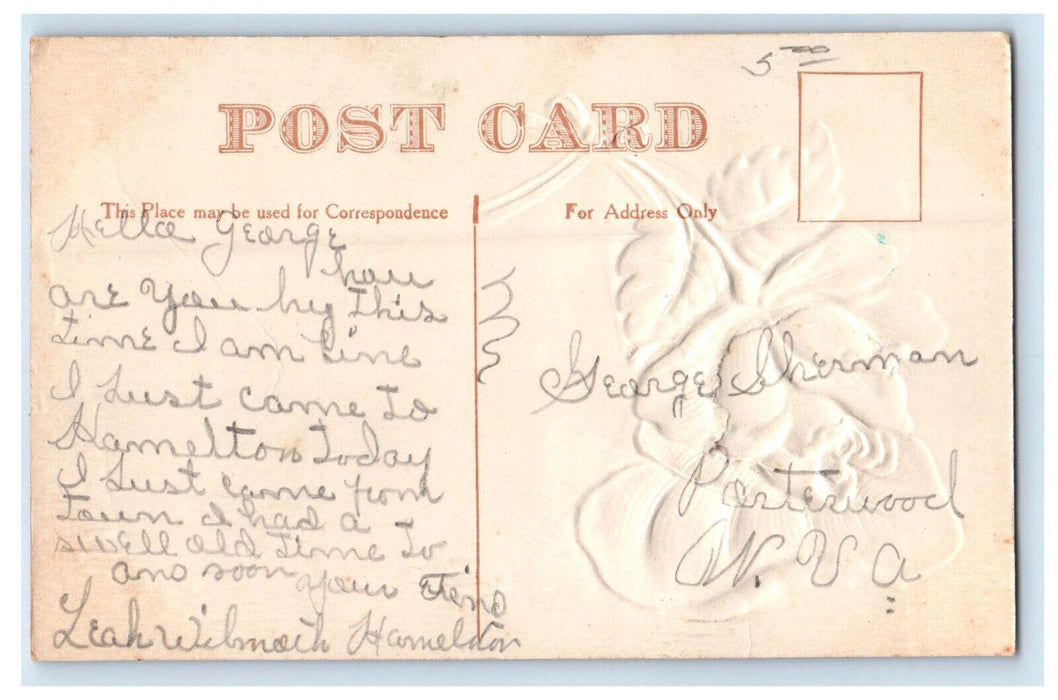 5.00
POST CARD
This Place may be used for Correspondence
For Address Only
Hello George
how
are you by this
time I am fine
I Just came to
Hamelton Today
I Just came from
Town I had a
swell old time to
ans soon your Friend
Leah Wilmoth Hameldon
George Sherman
Porterwood
W. Va